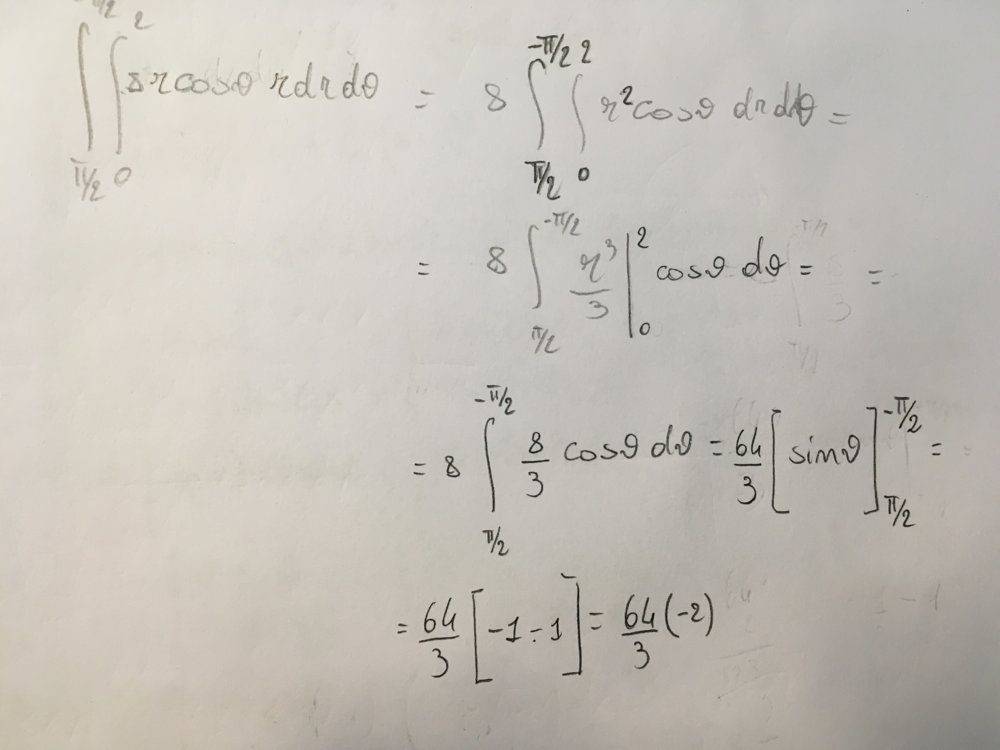 ∫_{π/2}^{-π/2} ∫_0^2 8r cosθ r dr dθ = 8 ∫_{π/2}^{-π/2} ∫_0^2 r² cosθ dr dθ =
= 8 ∫_{π/2}^{-π/2} r³/3 |_0^2 cosθ dθ = =
= 8 ∫_{π/2}^{-π/2} 8/3 cosθ dθ = 64/3 [sinθ]_{π/2}^{-π/2} =
= 64/3 [-1-1] = 64/3 (-2)